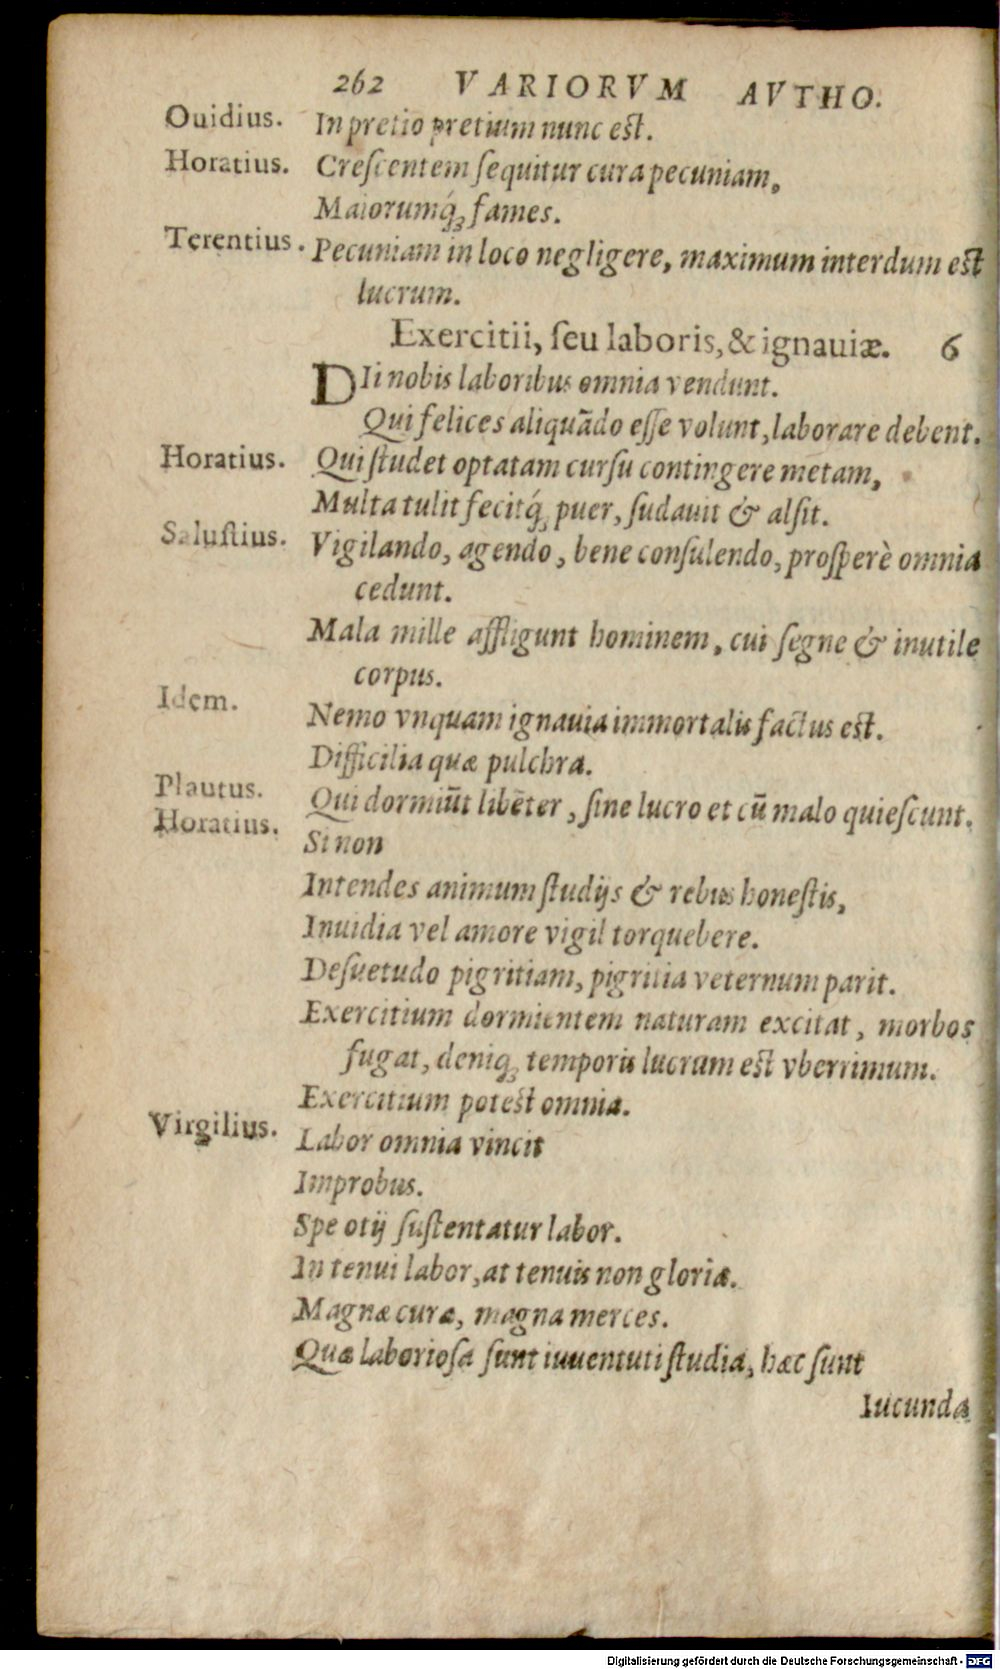 262 VARIORVM AVTHO.
Ouidius. In pretio pretium nunc est.
Horatius. Creſcentem ſequitur cura pecuniam,
Maiorumq́; fames.
Terentius. Pecuniam in loco negligere, maximum interdum est
lucrum.
Exercitii, ſeu laboris, & ignauiæ. 6
DIi nobis laboribus omnia vendunt.
Qui felices aliquãdo eſſe volunt, laborare debent.
Horatius. Qui ſtudet optatam curſu contingere metam,
Multa tulit fecitq́; puer, ſudauit & alſit.
Saluſtius. Vigilando, agendo, bene conſulendo, proſperè omnia
cedunt.
Mala mille affligunt hominem, cui ſegne & inutile
corpus.
Idem. Nemo vnquam ignauia immortalis factus est.
Difficilia quæ pulchra.
Plautus. Qui dormiũt libẽter, ſine lucro et cũ malo quieſcunt.
Horatius. Si non
Intendes animum ſtudijs & rebus honeſtis,
Inuidia vel amore vigil torquebere.
Deſuetudo pigritiam, pigritia veternum parit.
Exercitium dormientem naturam excitat, morbos
fugat, deniq; temporis lucrum est vberrimum.
Exercitium potest omnia.
Virgilius. Labor omnia vincit
Improbus.
Spe otij ſuſtentatur labor.
In tenui labor, at tenuis non gloria.
Magnæ curæ, magna merces.
Quæ laborioſa ſunt iuuentuti ſtudia, hæc ſunt
Iucunda
Digitalisierung gefördert durch die Deutsche Forschungsgemeinschaft - DFG